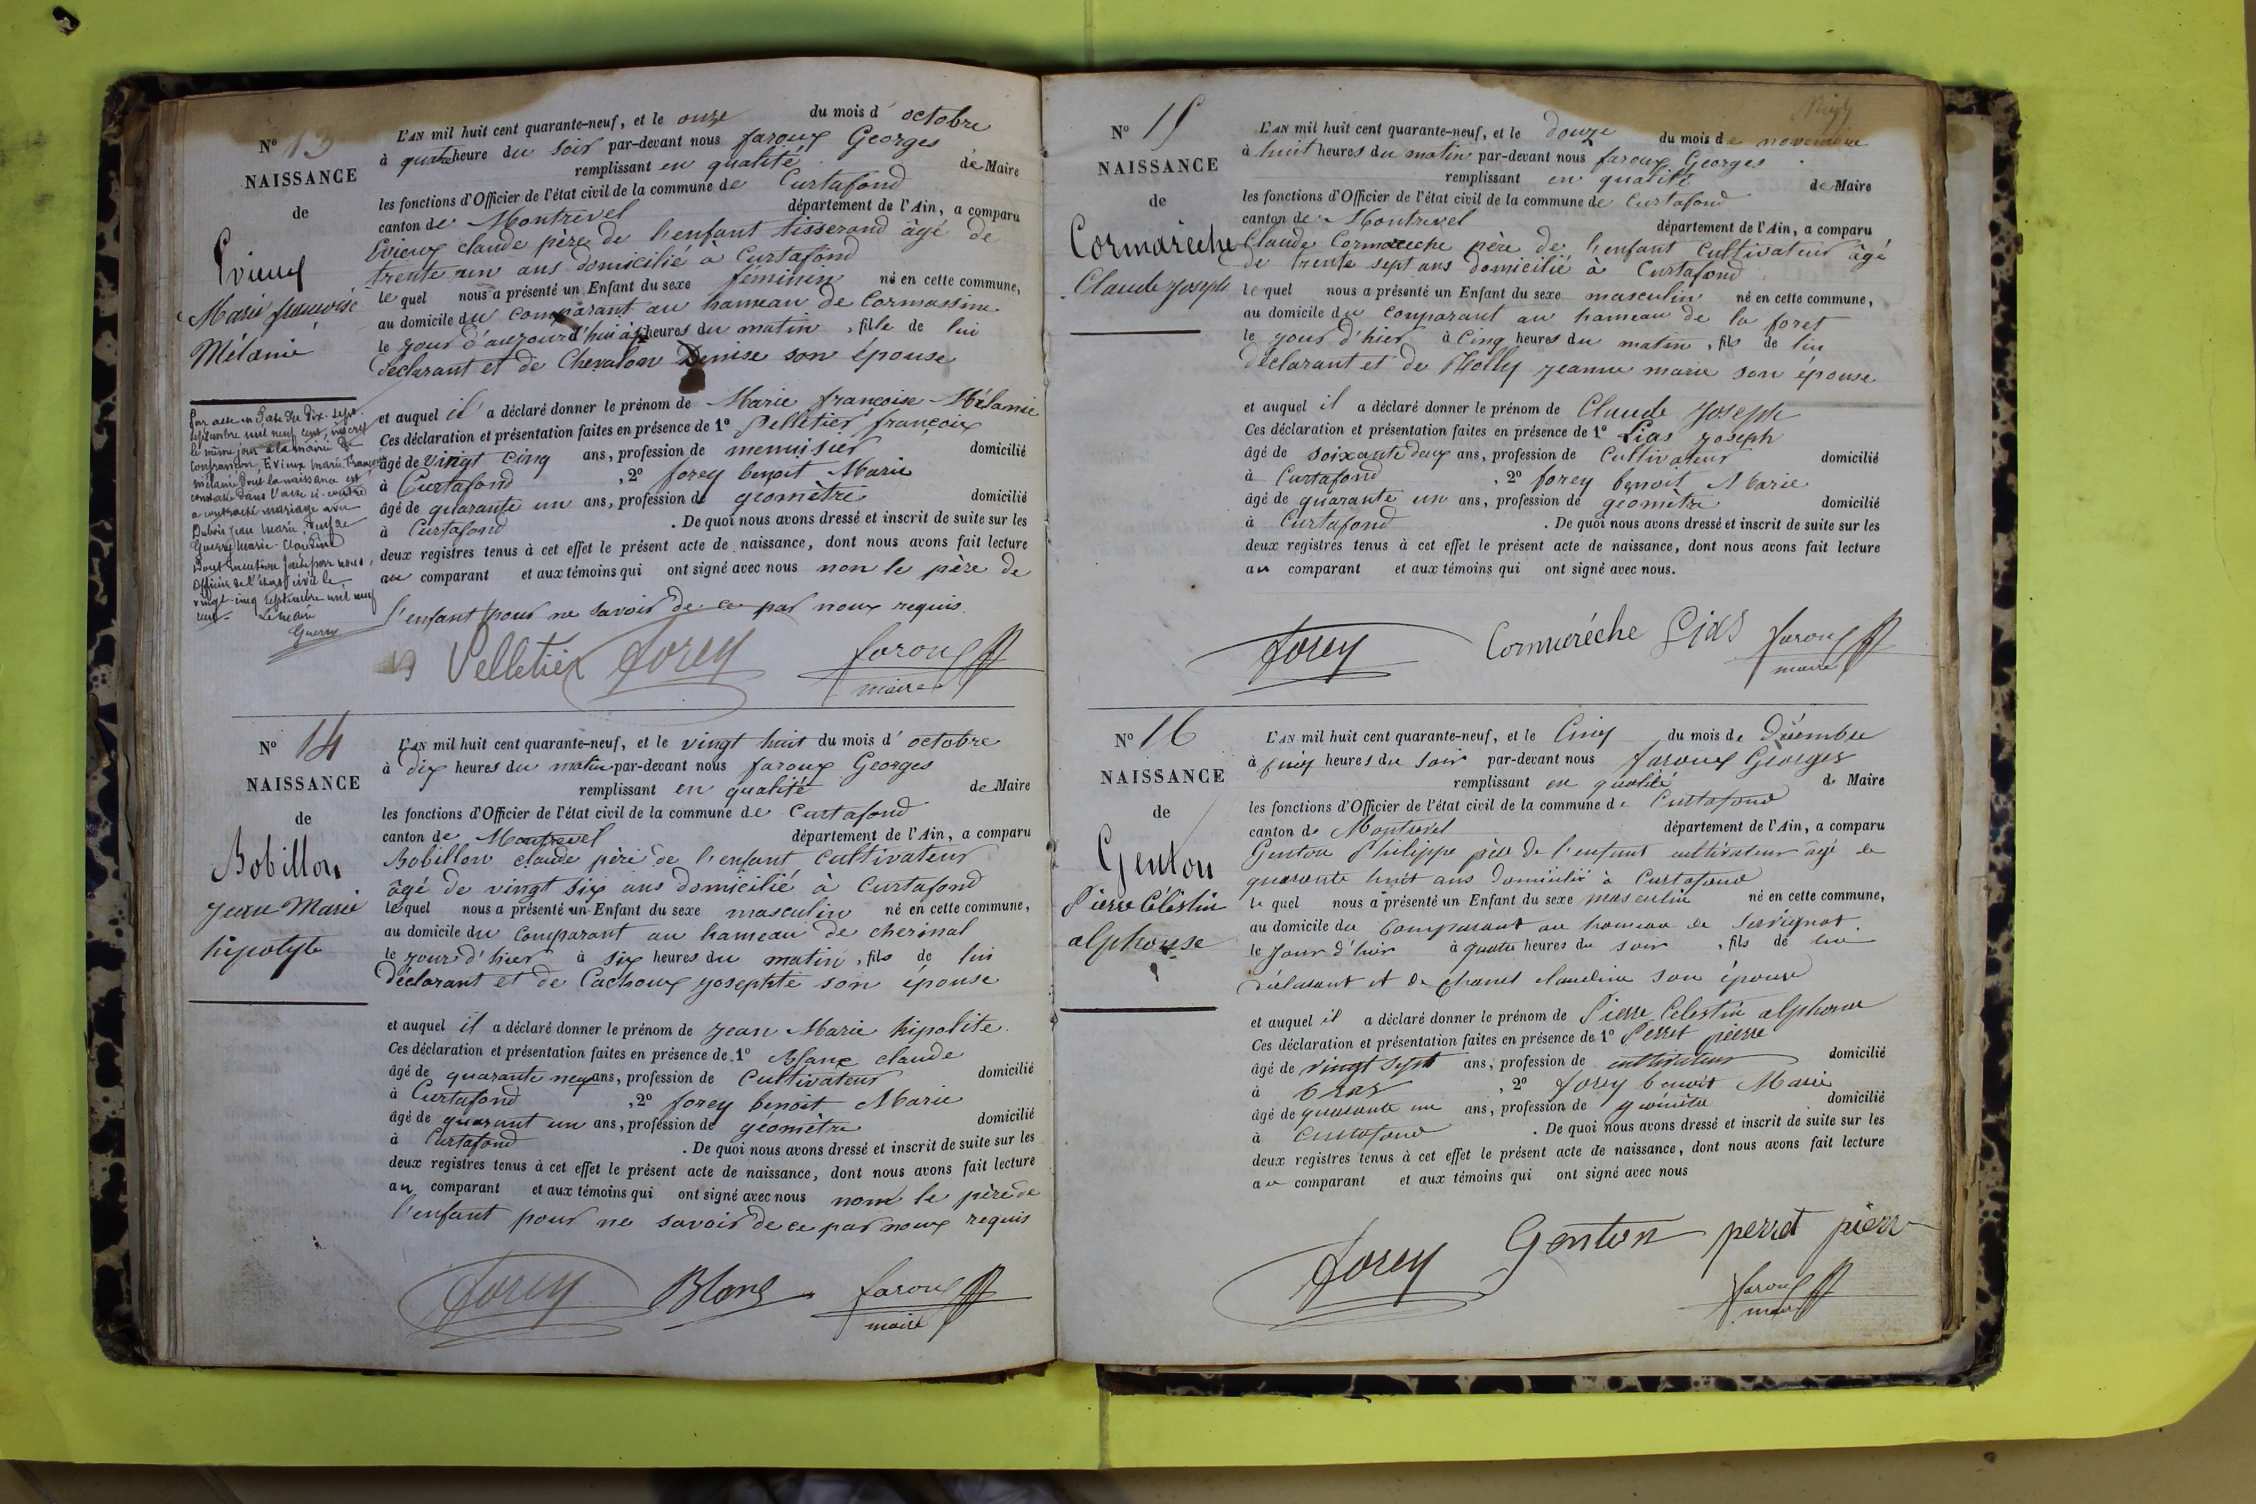 N° 13
NAISSANCE
de
Evieux
Marie françoise
Mélanie
Par acte en date du Dix-sept
septembre mil neuf cent, inscrit
le même jour à la mairie de
Confrançon, Evieux Marie Françoise
mélanie dont la naissance est
constatée dans l'acte ci-contre
a contracté mariage avec
Dubois Jean Marie, veuf de
Guerry Marie-Claudine
Dont mention faite par nous,
officier de l'état civil le
vingt-cinq septembre mil neuf
cent. Le maire
Guerry
L'AN mil huit cent quarante-neuf, et le onze du mois d' octobre
à quatre heure du soir par-devant nous faroux Georges
remplissant en qualité de Maire
les fonctions d'Officier de l'état civil de la commune de Curtafond
canton de Montrevel département de l'Ain, a comparu
Evieux claude père de l'enfant tisserand âgé de
trente un ans domicilié à Curtafond
le quel nous a présenté un Enfant du sexe feminin né en cette commune,
au domicile du comparant au hameau de Cormassine
le jour d'aujourd'hui à heures du matin, fille de lui
declarant et de Chevalon Denise son épouse
et auquel il a déclaré donner le prénom de Marie françoise Mélanie
Ces déclaration et présentation faites en présence de 1° Pelletier françois
âgé de vingt cinq ans, profession de menuisier domicilié
à Curtafond, 2° forey benoit Marie
âgé de quarante un ans, profession de geomètre domicilié
à Curtafond. De quoi nous avons dressé et inscrit de suite sur les
deux registres tenus à cet effet le présent acte de naissance, dont nous avons fait lecture
au comparant et aux témoins qui ont signé avec nous non le père de
l'enfant pour ne savoir de ce par noux requis.
Pelletier forey faroux
maire
N° 14
NAISSANCE
de
Bobillon
Jean Marie
hipolyte
L'AN mil huit cent quarante-neuf, et le vingt huit du mois d' octobre
à dix heures du matin par-devant nous faroux Georges
remplissant en qualité de Maire
les fonctions d'Officier de l'état civil de la commune de Curtafond
canton de Montrevel département de l'Ain, a comparu
Bobillon claude père de l'enfant cultivateur
âgé de vingt six ans domicilié à Curtafond
lequel nous a présenté un Enfant du sexe masculin né en cette commune,
au domicile du comparant au hameau de cherinal
le jour d'hier à six heures du matin, fils de lui
déclarant et de Cachoux josephte son épouse
et auquel il a déclaré donner le prénom de Jean Marie hipolite.
Ces déclaration et présentation faites en présence de 1° Blanc claude
âgé de quarante neuf ans, profession de Cultivateur domicilié
à Curtafond, 2° forey benoit Marie
âgé de quarant un ans, profession de géomètre domicilié
à Curtafond. De quoi nous avons dressé et inscrit de suite sur les
deux registres tenus à cet effet le présent acte de naissance, dont nous avons fait lecture
au comparant et aux témoins qui ont signé avec nous nom le père de
l'enfant pour ne savoir de ce par noux requis
forey Blanc faroux
maire
N° 15
NAISSANCE
de
Cormarèche
Claude Joseph
L'AN mil huit cent quarante-neuf, et le douze du mois de novembre
à huit heures du matin par-devant nous faroux Georges
remplissant en qualité de Maire
les fonctions d'Officier de l'état civil de la commune de Curtafond
canton de Montrevel département de l'Ain, a comparu
Claude Cormareche père de l'enfant Cultivateur âgé
de trente sept ans domicilié à Curtafond
le quel nous a présenté un Enfant du sexe masculin né en cette commune,
au domicile du comparant au hameau de la foret
le jour d'hier à cinq heures du matin, fils de lui
déclarant et de Jeanne marie son épouse
et auquel il a déclaré donner le prénom de Claude Joseph
Ces déclaration et présentation faites en présence de 1° Pias Joseph
âgé de soixante deux ans, profession de Cultivateur domicilié
à Curtafond, 2° forey benoit Marie
âgé de quarante un ans, profession de geomètre domicilié
à Curtafond. De quoi nous avons dressé et inscrit de suite sur les
deux registres tenus à cet effet le présent acte de naissance, dont nous avons fait lecture
au comparant et aux témoins qui ont signé avec nous.
forey Cormaréche Pias faroux
maire
N° 16
NAISSANCE
de
Genton
Pierre Célestin
alphonse
L'AN mil huit cent quarante-neuf, et le Cinq du mois de Décembre
à cinq heures du soir par-devant nous faroux Georges
remplissant en qualité de Maire
les fonctions d'Officier de l'état civil de la commune de Curtafond
canton de Montrevel département de l'Ain, a comparu
Genton Philippe père de l'enfant cultivateur âgé de
quarante huit ans domicilié à Curtafond
le quel nous a présenté un Enfant du sexe masculin né en cette commune,
au domicile du comparant au hameau de Servignat.
le jour d'hier à quatre heures du soir, fils de lui
déclarant et de Chanel claudine son épouse
et auquel il a déclaré donner le prénom de Pierre Celestin alphonse
Ces déclaration et présentation faites en présence de 1° Perret pierre
âgé de vingt sept ans, profession de cultivateur domicilié
à Cras, 2° forey benoit Marie
âgé de quarante un ans, profession de géomètre domicilié
à Curtafond. De quoi nous avons dressé et inscrit de suite sur les
deux registres tenus à cet effet le présent acte de naissance, dont nous avons fait lecture
au comparant et aux témoins qui ont signé avec nous
forey Genton perret pierre
faroux
maire